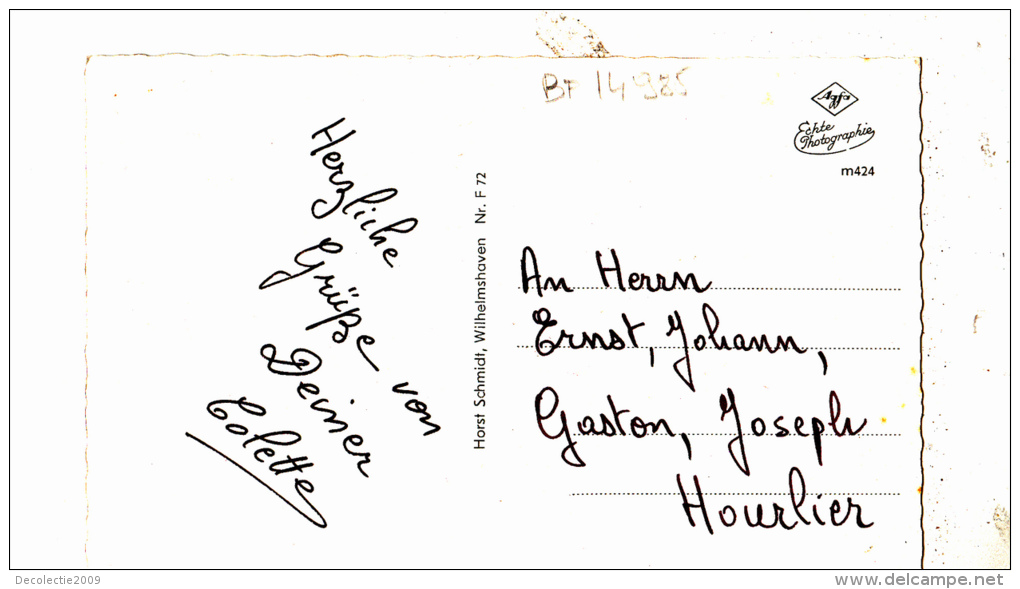 BP 14 985
Agfa
Echte
Photographie
m424
Herzliche
Grüße von
Deiner
Colette
Horst Schmidt, Wilhelmshaven Nr. F 72
An Herrn
Ernst, Johann,
Gaston, Joseph
Hourlier
Decolectie2009
www.delcampe.net